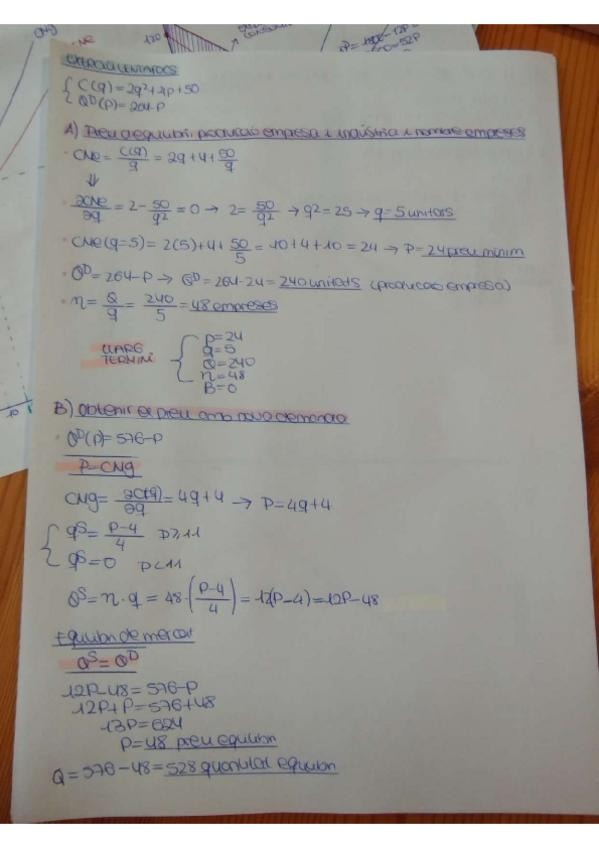 120
{ C(q) = 2q²+4p+50
QD(P) = 264-P
A) Preu d'equilibri, producció empresa i indústria i nombre empreses
· CMe = C(q)/q = 2q+4+50/q
⇓
· ∂CMe/∂q = 2 - 50/q² = 0 → 2 = 50/q² → q² = 25 → q = 5 unitats
· CMe(q=5) = 2(5)+4+50/5 = 10+4+10 = 24 → P = 24 preu mínim
· QD = 264-P → QD = 264-24 = 240 unitats (producció empresa)
· n = Q/q = 240/5 = 48 empreses
LLARG TERMINI { P=24
q=5
Q=240
n=48
B=0
B) Obtenir el preu amb nova demanda
· QD(P) = 576-P
P=CMg
CMg = ∂C(q)/∂q = 4q+4 → P = 4q+4
{ qS = P-4/4 P≥11
qS = 0 P<11
QS = n·q = 48·(P-4/4) = 12(P-4) = 12P-48
Equilibri de mercat
QS = QD
12P-48 = 576-P
12P+P = 576+48
13P = 624
P = 48 preu equilibri
Q = 576-48 = 528 quantitat equilibri
10